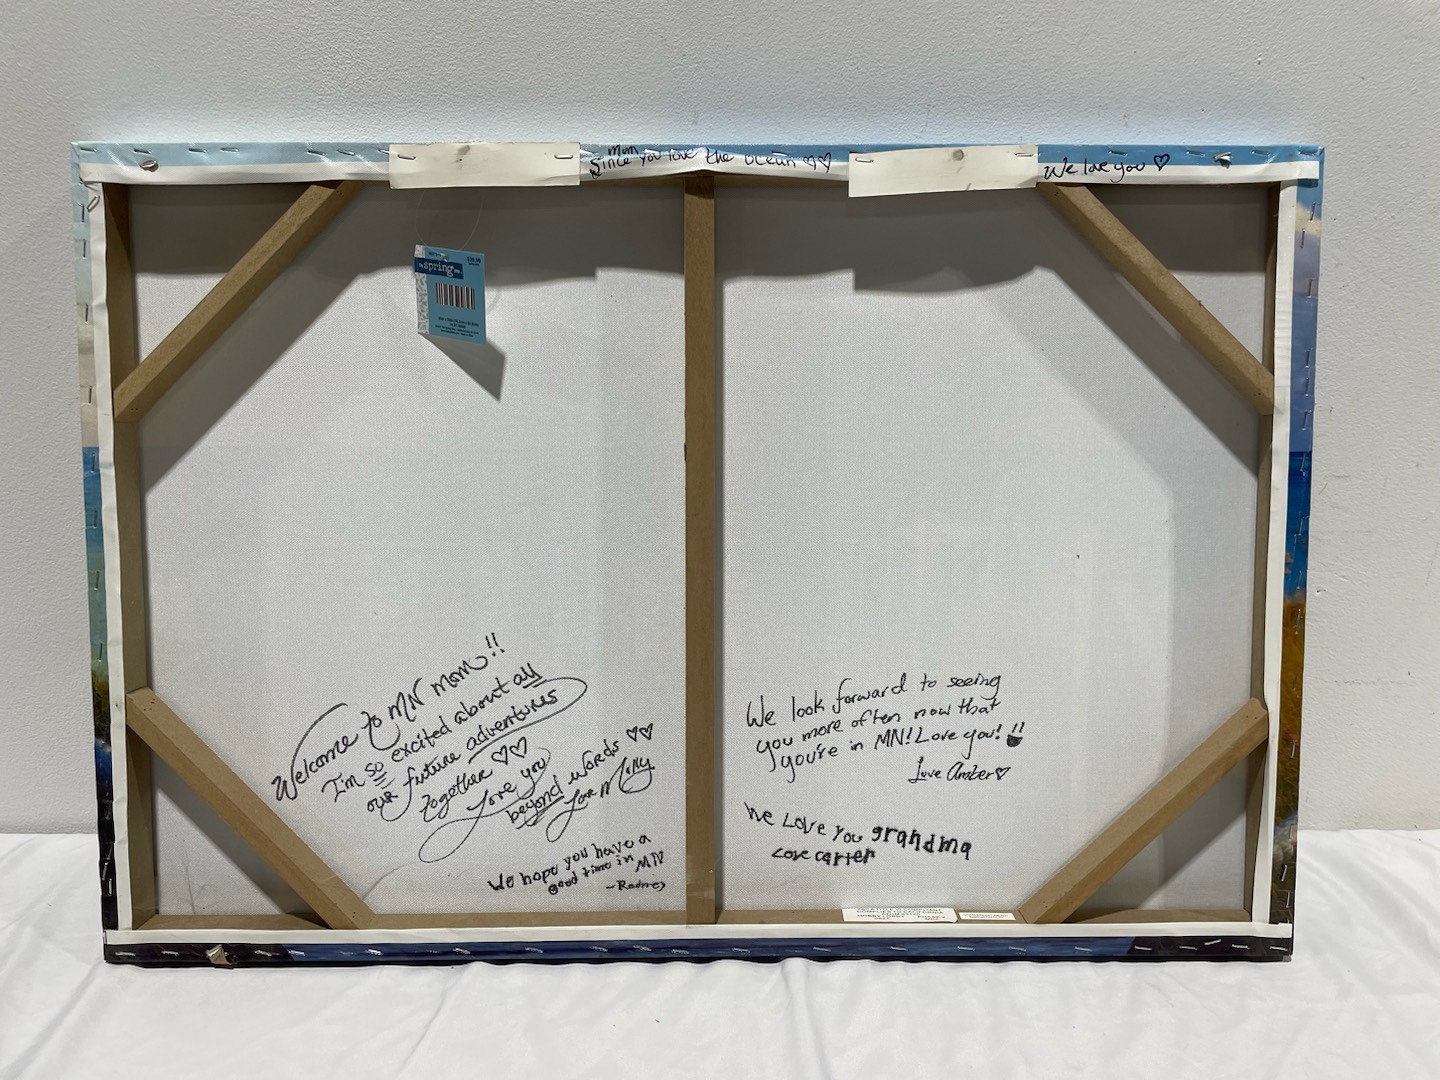 mom
Since you love the ocean ♡♡
We love you ♡
$39.99
the spring shop
Welcome to MN mom!!
I'm so excited about all
our future adventures
together ♡♡
Love you
beyond words ♡♡
Love Molly
We hope you have a
good time in MN
~Rodney
We look forward to seeing
you more often now that
you're in MN! Love you!
Love Amber♡
We Love You grandma
Love carter